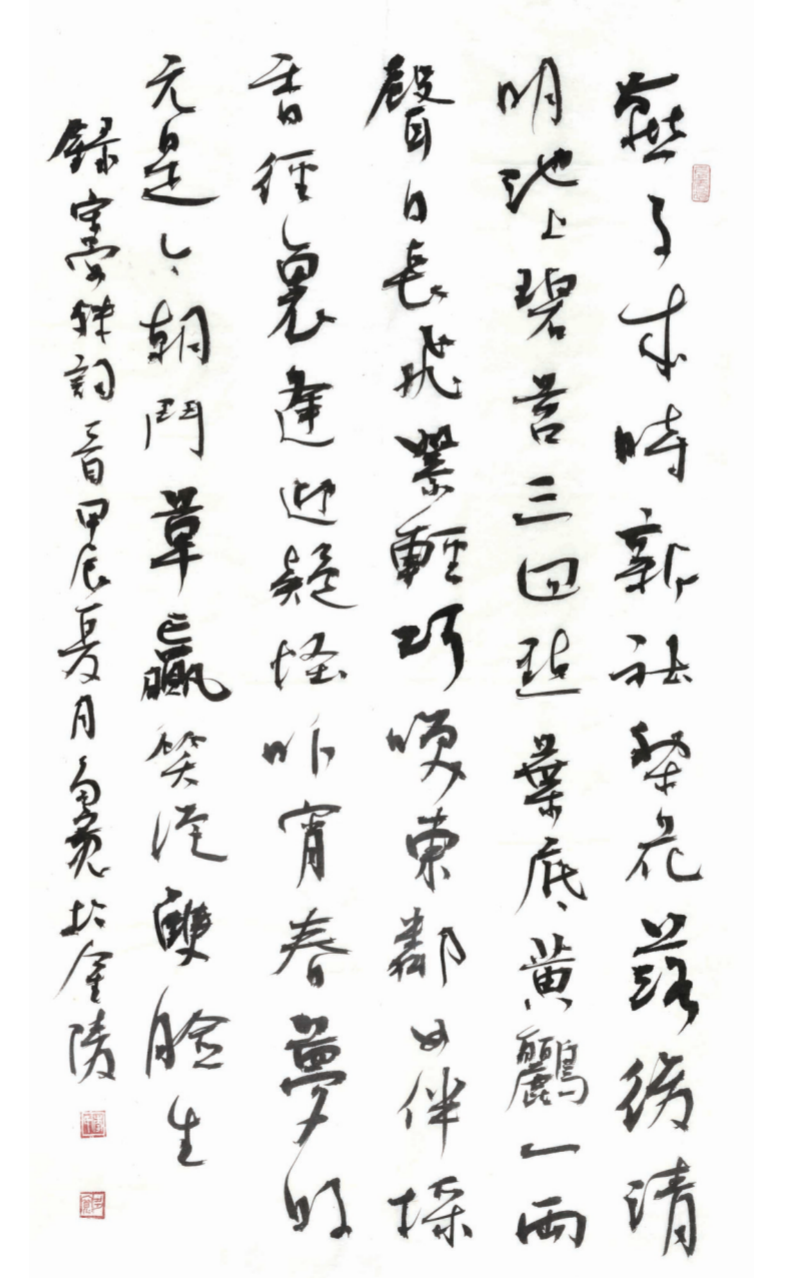 燕子來時新社梨花落後清
明池上碧苔三四點葉底黃鸝一兩
聲日長飛絮輕巧咲東鄰女伴採
香徑裏逢迎疑怪昨宵春夢好
元是今朝鬥草贏笑從雙臉生
錄宋晏殊詞一首甲辰夏月於金陵